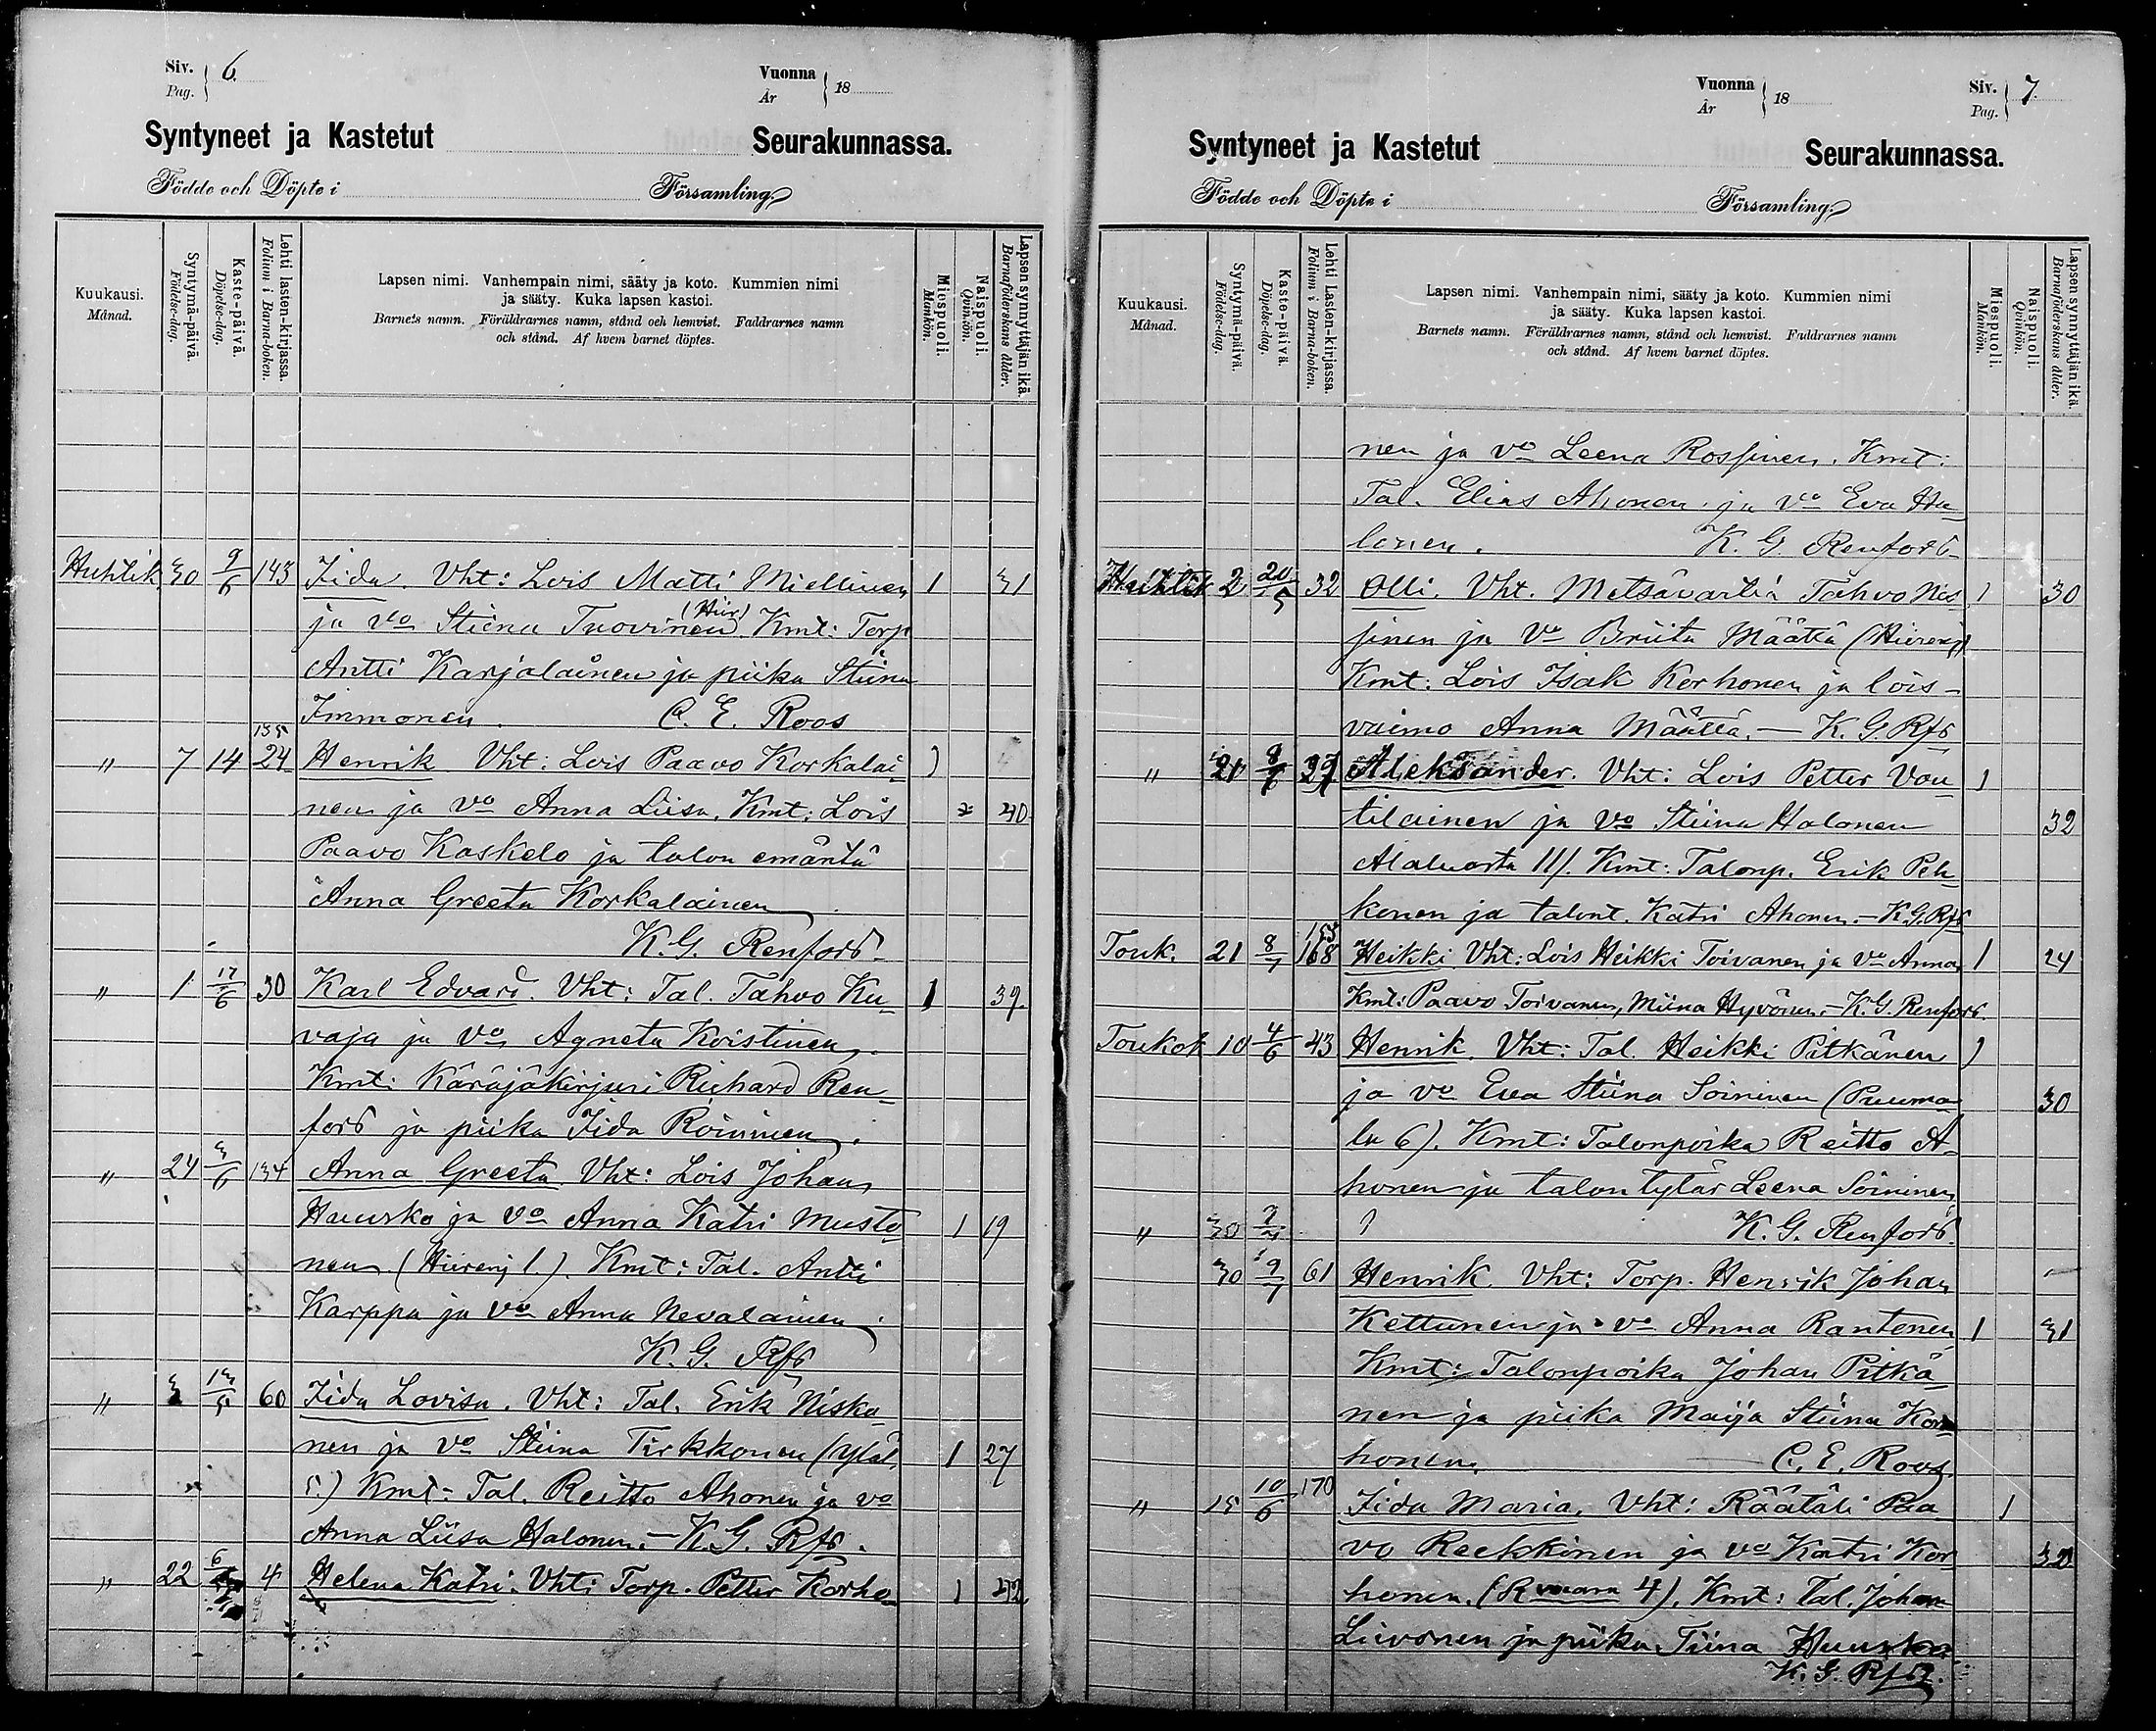 Siv. 6.
Pag.
Vuonna 18
År
Syntyneet ja Kastetut Seurakunnassa.
Födde och Döpte i Församling.
Kuukausi.
Månad.
Syntymä-päivä.
Födelse-dag.
Kaste-päivä.
Döpelse-dag.
Lehti lasten-kirjassa.
Folium i Barna-boken.
Lapsen nimi. Vanhempain nimi, sääty ja koto. Kummien nimi
ja sääty. Kuka lapsen kastoi.
Barnets namn. Föräldrarnes namn, stånd och hemvist. Faddrarnes namn
och stånd. Af hvem barnet döptes.
Miespuoli.
Mankön.
Naispuoli.
Qvinkön.
Lapsen synnyttäjän ikä.
Barnaföderskans ålder.
Huhtik. 30 9/6 143 Iida. Vht: Lois Matti Miellinen 1 31
(Hür)
ja vo Stiina Tuovinen Kmt: Torp
Antti Karjalainen ja piika Stiina
Immonen. C. E. Roos
135
" 7 14 24 Henrik Vht: Lois Paavo Korkalai- 1
nen ja vo Anna Liisa. Kmt: Lois 40
Paavo Kaskelo ja talon emäntä
Anna Greeta Korkalainen
K. G. Renfors.
" 1 17/6 30 Karl Edvard. Vht: Tal. Tahvo Ku- 1 39
vaja ja vo Agneta Koistinen.
Kmt: Käräjäkirjuri Richard Ren-
fors ja piika Iida Roininen.
" 24 3/6 134 Anna Greeta Vht: Lois Johan
Huusko ja vo Anna Katri Musto- 1 19
nen. (Hiirenj 1.). Kmt: Tal. Antti
Karppa ja vo Anna Nevalainen.
K. G. Rfs
" 3 13/5 60 Iida Lovisa. Vht: Tal. Erik Niska-
nen ja vo Stiina Tirkkonen (Yläl. 1 27
5.) Kmt: Tal. Reitto Ahonen ja vo
Anna Liisa Halonen. — K. G. Rfs.
" 22 6 4 Helena Katri. Vht: Torp. Petter Korho- 1 42
Vuonna 18
År
Siv. 7.
Pag.
Syntyneet ja Kastetut Seurakunnassa.
Födde och Döpte i Församling.
Kuukausi.
Månad.
Syntymä-päivä.
Födelse-dag.
Kaste-päivä.
Döpelse-dag.
Lehti Lasten-kirjassa.
Folium i Barna-boken.
Lapsen nimi. Vanhempain nimi, sääty ja koto. Kummien nimi
ja sääty. Kuka lapsen kastoi.
Barnets namn. Föräldrarnes namn, stånd och hemvist. Faddrarnes namn
och stånd. Af hvem barnet döptes.
Miespuoli.
Mankön.
Naispuoli.
Quinkön.
Lapsen synnyttäjän ikä.
Barnaföderskans ålder.
nen ja vo Leena Rossinen. Kmt:
Tal. Elias Ahonen ja vo Eva Ha-
lonen. K. G. Renfors
Huhtik 2 20/5 32 Olli. Vht. Metsävartia Tahvo Nis- 1 30
sinen ja vo Briita Määttä (Hiirenj)
Kmt: Lois Isak Korhonen ja lois-
vaimo Anna Määttä. — K. G. Rfs
" 21 8/6 37 Aleksander. Vht: Lois Petter Vou- 1
tilainen ja vo Stiina Halonen 32
Alaluosta 11/. Kmt: Talonp. Erik Peh-
konen ja talont. Katri Ahonen. — K. G. Rfs
153
Touk. 21 8/7 168 Heikki Vht: Lois Heikki Toivanen ja vo Anna 1 24
Kmt: Paavo Toivanen, Miina Hyvönen. — K. G. Renfors.
Toukok 10 4/6 43 Henrik. Vht: Tal. Heikki Pitkänen 1
ja vo Eva Stiina Soininen (Puuma- 30
la 6). Kmt: Talonpoika Reitto A-
honen ja talontytär Leena Soininen
" 30 K. G. Renfors.
30 9/7 61 Henrik. Vht: Torp. Henrik Johan
Kettunen ja vo Anna Rantonen 1 31
Kmt: Talonpoika Johan Pitkä-
nen ja piika Maija Stiina Kor-
honen. C. E. Roos
" 15 10/6 170 Iida Maria. Vht: Räätäli Paa- 1
vo Reekkinen ja vo Katri Kor-
honen. (R vaara 4). Kmt: Tal. Johan
Liivonen ja piika Tiina Huusko
K. G. Rfs.